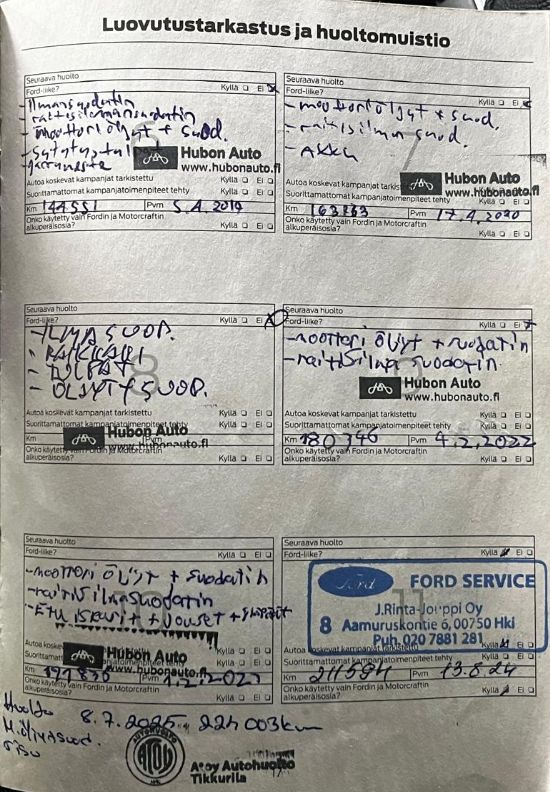 Luovutustarkastus ja huoltomuistio
Seuraava huolto
Ford-liike? Kyllä Ei
Ilmansuodatin
- raitisilmansuodatin
- moottori öljyt + suod.
Hubon Auto
www.hubonauto.fi
Autoa koskevat kampanjat tarkistettu
Suorittamattomat kampanjatoimenpiteet tehty Kyllä Ei
Km 144551 Pvm 5.4.2019
Onko käytetty vain Fordin ja Motorcraftin
alkuperäisosia? Kyllä Ei
Seuraava huolto
Ford-liike? Kyllä Ei
- moottoriöljyt + suod.
- raitisilma suod.
- Akku
Hubon Auto
www.hubonauto.fi
Autoa koskevat kampanjat tarkistettu
Suorittamattomat kampanjatoimenpiteet tehty Kyllä Ei
Km Pvm 17.4.2020
Onko käytetty vain Fordin ja Motorcraftin
alkuperäisosia? Kyllä Ei
Seuraava huolto
Ford-liike? Kyllä Ei
- ILMASUOD.
- TULPAT
- ÖLJYT + SUOD.
Autoa koskevat kampanjat tarkistettu Kyllä Ei
Suorittamattomat kampanjatoimenpiteet tehty Kyllä Ei
Hubon Auto
www.hubonauto.fi
Km Pvm
Onko käytetty vain Fordin ja Motorcraftin
alkuperäisosia? Kyllä Ei
Seuraava huolto
Ford-liike? Kyllä Ei
- moottori öljyt + suodatin
- raitisilma suodatin
Hubon Auto
www.hubonauto.fi
Autoa koskevat kampanjat tarkistettu Kyllä Ei
Suorittamattomat kampanjatoimenpiteet tehty Kyllä Ei
Km 180346 Pvm 4.2.2022
Onko käytetty vain Fordin ja Motorcraftin
alkuperäisosia? Kyllä Ei
Seuraava huolto
Ford-liike? Kyllä Ei
- moottori öljyt + suodatin
- raitisilmasuodatin
- Etu iskarit + jouset +
Hubon Auto
www.hubonauto.fi
Autoa kos
Suorittamat kampanjatoimenpiteet tehty Kyllä Ei
Km Pvm
Onko käytetty vain Fordin ja Motorcraftin
alkuperäisosia? Kyllä Ei
Seuraava huolto
Ford-liike? Kyllä Ei
Ford FORD SERVICE
J.Rinta-Jouppi Oy
8 Aamuruskontie 6, 00750 Hki
Puh. 020 7881 281
Autoa koskevat kampanjat tarkistettu Kyllä Ei
Suorittamattomat kampanjatoimenpiteet tehty Kyllä Ei
Km 211594 Pvm 13.8.24
Onko käytetty vain Fordin ja Motorcraftin
alkuperäisosia? Kyllä Ei
Huolto 8.7.2025 225 003km
AUTOHUOLTO
ATOY
Atoy Autohuolto
Tikkurila